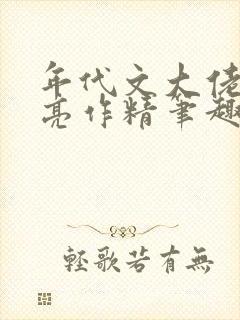 年代文大佬
亮作精笔趣
轻歌若有无